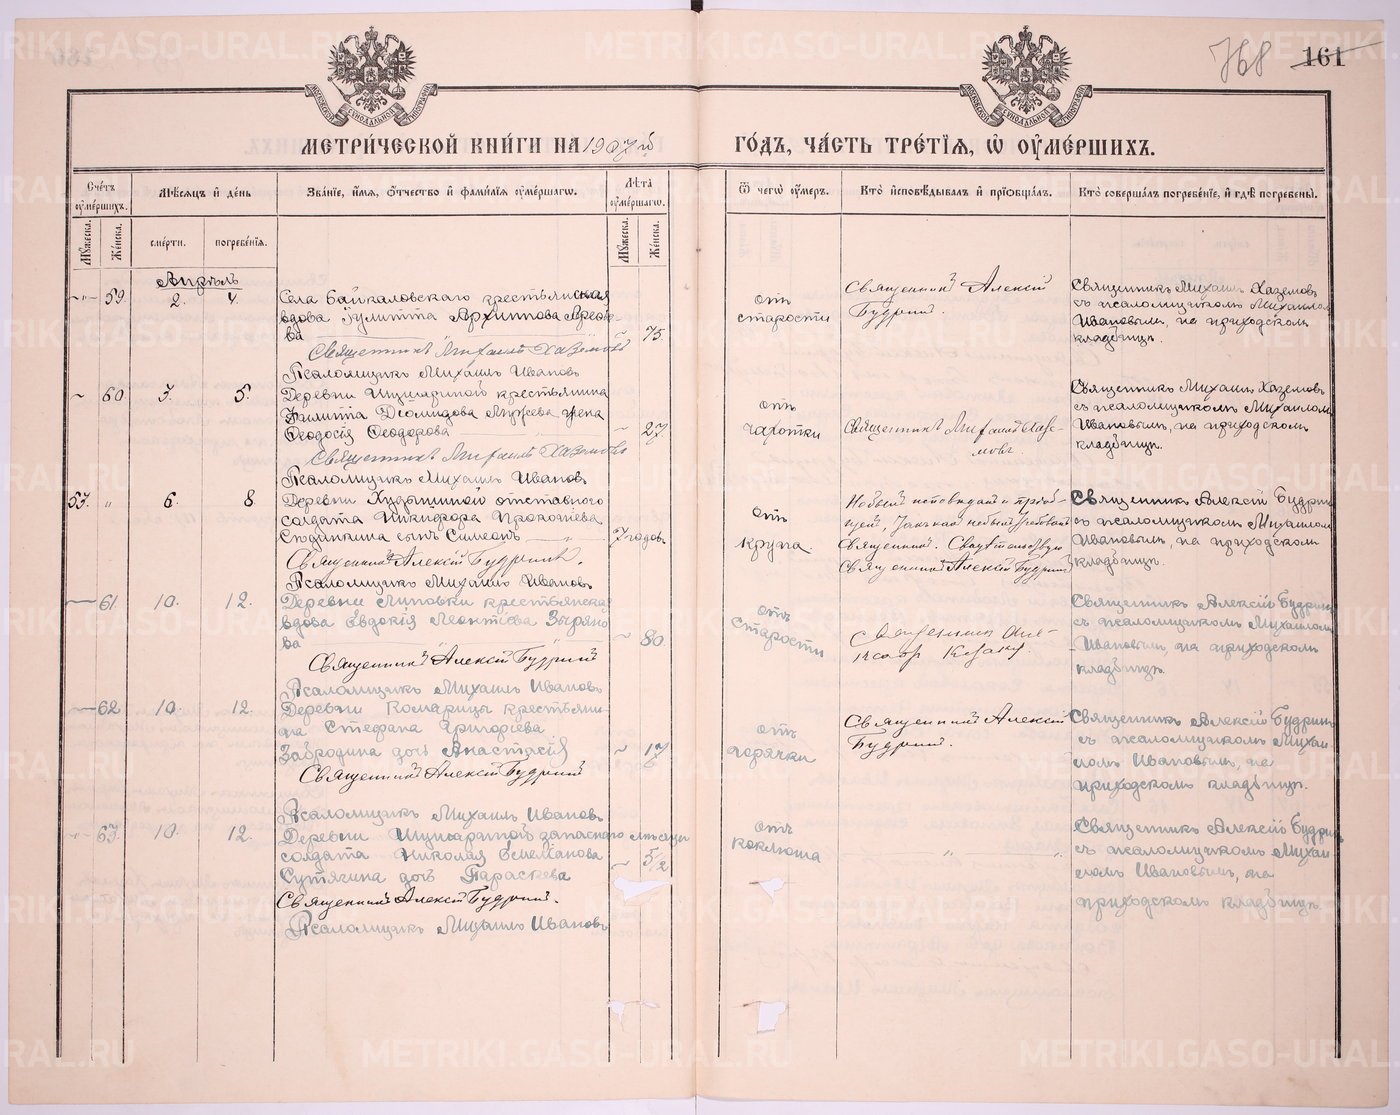 768 161
МЕТРИ́ЧЕСКОЙ КНИ́ГИ НА 1907й ГО́ДЪ, ЧА́СТЬ ТРЕ́ТІЯ, Ѿ ОУМЕ́РШИХЪ.
Сче́тъ оуме́ршихъ.
Му́жеска.
Же́нска.
Мѣ́сяцъ и день
сме́рти.
погребе́нія.
Зва́ніе, и́мя, о́тчество и фами́лія оуме́ршагѡ.
Лѣ́та оуме́ршагѡ.
Му́жеска.
Же́нска.
Ѿ чегѡ оу́меръ.
Кто̀ исповѣ́дывалъ и пріѻбща́лъ.
Кто̀ соверша́лъ погребе́ніе, и гдѣ̀ погребены̀.
Апрѣль
59 2. 4.
Села Байкаловскаго крестьянская
вдова Іулитта Архиппова
ва 75
Священникъ Михаилъ Хаземовъ
Псаломщикъ Михаилъ Ивановъ
отъ
старости
Священник Алексій
Будрин.
Священникъ Михаилъ Хаземовъ
съ псаломщикомъ Михаиломъ
Ивановымъ, на приходском
кладбищѣ.
60 3. 5.
Деревни крестьянина
Филиппа Діомидова жена
Ѳеодосія Ѳеодорова 27
Священникъ Михаилъ Хаземовъ
Псаломщикъ Михаилъ Ивановъ
отъ
чахотки
Священникъ Михаилъ Хазе-
мовъ.
Священникъ Михаилъ Хаземовъ
съ псаломщикомъ Михаиломъ
Ивановымъ, на приходскомъ
кладбищѣ.
57. „ 6. 8
Деревни отставного
солдата Никифора Прокопіева
сынъ Симеонъ 7 годов.
Священник Алексій Будрин.
Псаломщикъ Михаилъ Ивановъ
отъ
крупа.
Священник. Свидѣтельствую
Священник Алексій Будрин
Священникъ Алексій Будринъ
съ псаломщикомъ Михаиломъ
Ивановымъ, на приходскомъ
кладбищѣ.
61 10. 12.
Деревни Липовки крестьянска
вдова Евдокія Леонтіева Зыряно
ва 80
Священник Алексій Будрин
Псаломщикъ Михаилъ Ивановъ
отъ
старости
Священникъ Алексій Будринъ
съ псаломщикомъ Михаиломъ
Ивановымъ, на приходскомъ
кладбищѣ.
62 10. 12.
Деревни Комарицы крестьяни-
на Стефана Григорьева
Забродина дочь Анастасія 17
Священник Алексій Будрин
Псаломщикъ Михаилъ Ивановъ
отъ
горячки
Священник Алексій
Будрин.
Священникъ Алексій Будринъ
съ псаломщикомъ Михаи-
ломъ Ивановымъ, на
приходскомъ кладбищѣ.
63. 10. 12.
Деревни запаснаго мѣсяцы
солдата Николая Емеліанова 5/2
Сутягина дочь Параскева
Священник Алексій Будрин.
Псаломщикъ Михаилъ Ивановъ
отъ
коклюша
Священникъ Алексій Будринъ
съ псаломщикомъ Михаи
ломъ Ивановымъ, на
приходскомъ кладбищѣ.